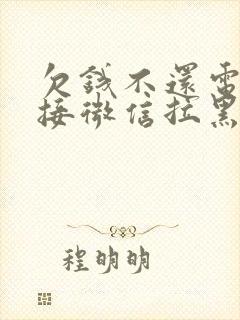 欠錢不還電
接微信拉黑
程明明